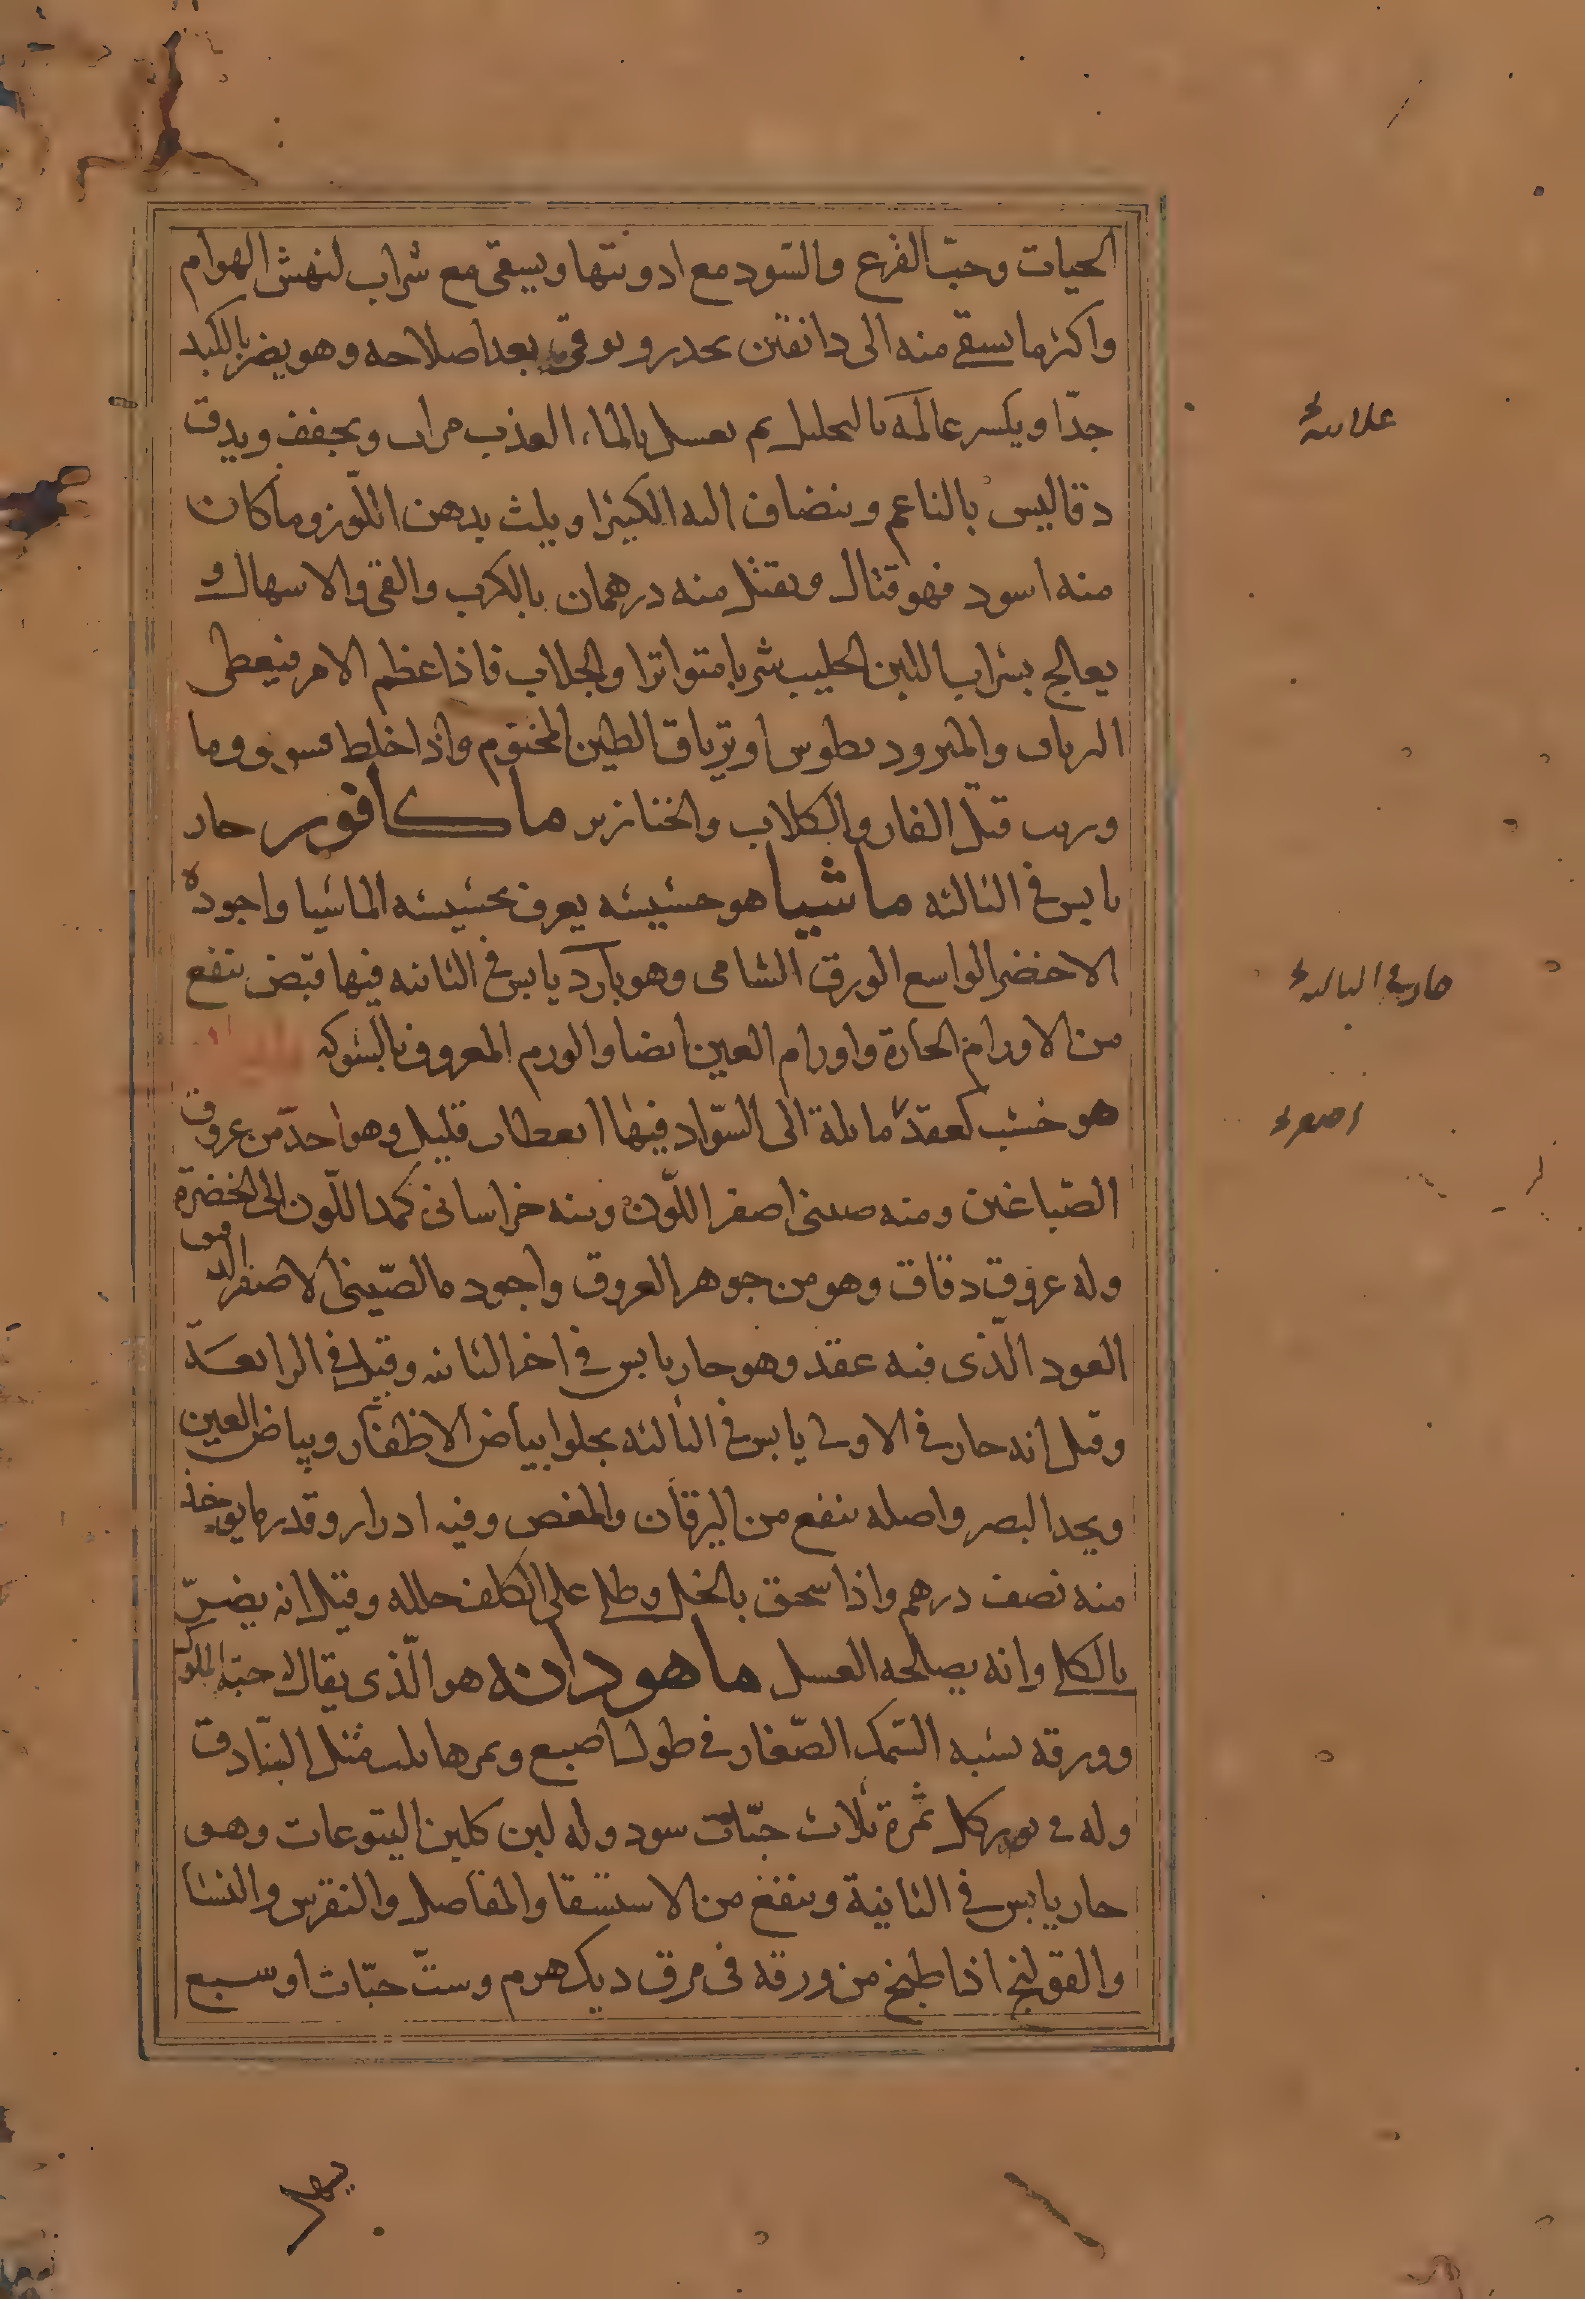 الحيات وحبّ القرع والسود مع ادويتها ويسقى مع شراب لنهش الهوام
واكثر ما يسقى منه الى دانقين بحدر وتوقى بعد اصلاحه وهو يضر بالكبد
جدّا ويكسر عالمه بالتحليل ثم يغسل بالماء العذب مرات ويجفف ويدق
دقا ليس بالناعم وينضاف اليه الكثيرا ويلث بدهن اللّوز وما كان
منه اسود فهو قتال ويقتل منه درهمان بالكرب والقى والاسهال و
يعالج بشراب اللبن الحليب شربا متواترا والجلاب فاذا عظم الامر فيعطى
الترياق والمثرود يطوس او ترياق الطين المختوم واذا خلط بسويق وما
وزيت قتل الفار والكلاب والخنازير ماكافور حار
يابس فى الثالثه ماشيا هو حشيشه يعرف بحشيشه الماشيا واجوده
الاخضر الواسع الورق الشامى وهو بارد يابس فى الثانيه فيها قبض ينفع
من الاورام الحارة واورام العين ايضا والورم المعروف بالشوكه
هو خشب كعقد مائلة الى السّواد فيها انعطاف قليل وهو احدّ من عروق
الصّباغين ومنه صينى اصفر اللّون ومنه خراسانى كمد اللّون الى الخضرة
وله عروق دقاق وهو من جوهر العروق واجوده الصّينى الاصفر الدقيق
العود الّذى فيه عقد وهو حار يابس فى اخر الثانيه وقيل فى الرابعة
وقيل انه حار فى الاولى يابس فى الثالثه يجلوا بياض الاظفار وبياض العين
ويحد البصر واصله ينفع من اليرقان والمغص وفيه ادرار وقدر ما يوخذ
منه نصف درهم واذا سحق بالخل وطلى على الكلف حلله وقيل انه يضرّ
بالكلى وانه يصلحه العسل ماهودانه هو الّذى يقال حبّه الملوك
وورقه يشبه السّمك الصّغار فى طول اصبع وثمرها ثلث مثل البنّادق
وله فى كل ثمرة ثلاث حبّات سود وله لبن كلبن اليتوعات وهو
حار يابس فى الثانية وينفع من الاستسقا والمفاصل والنقرس والنسا
والقولنج اذا طبخ من ورقه فى مرق ديك هرم وستّ حبّات او سبع